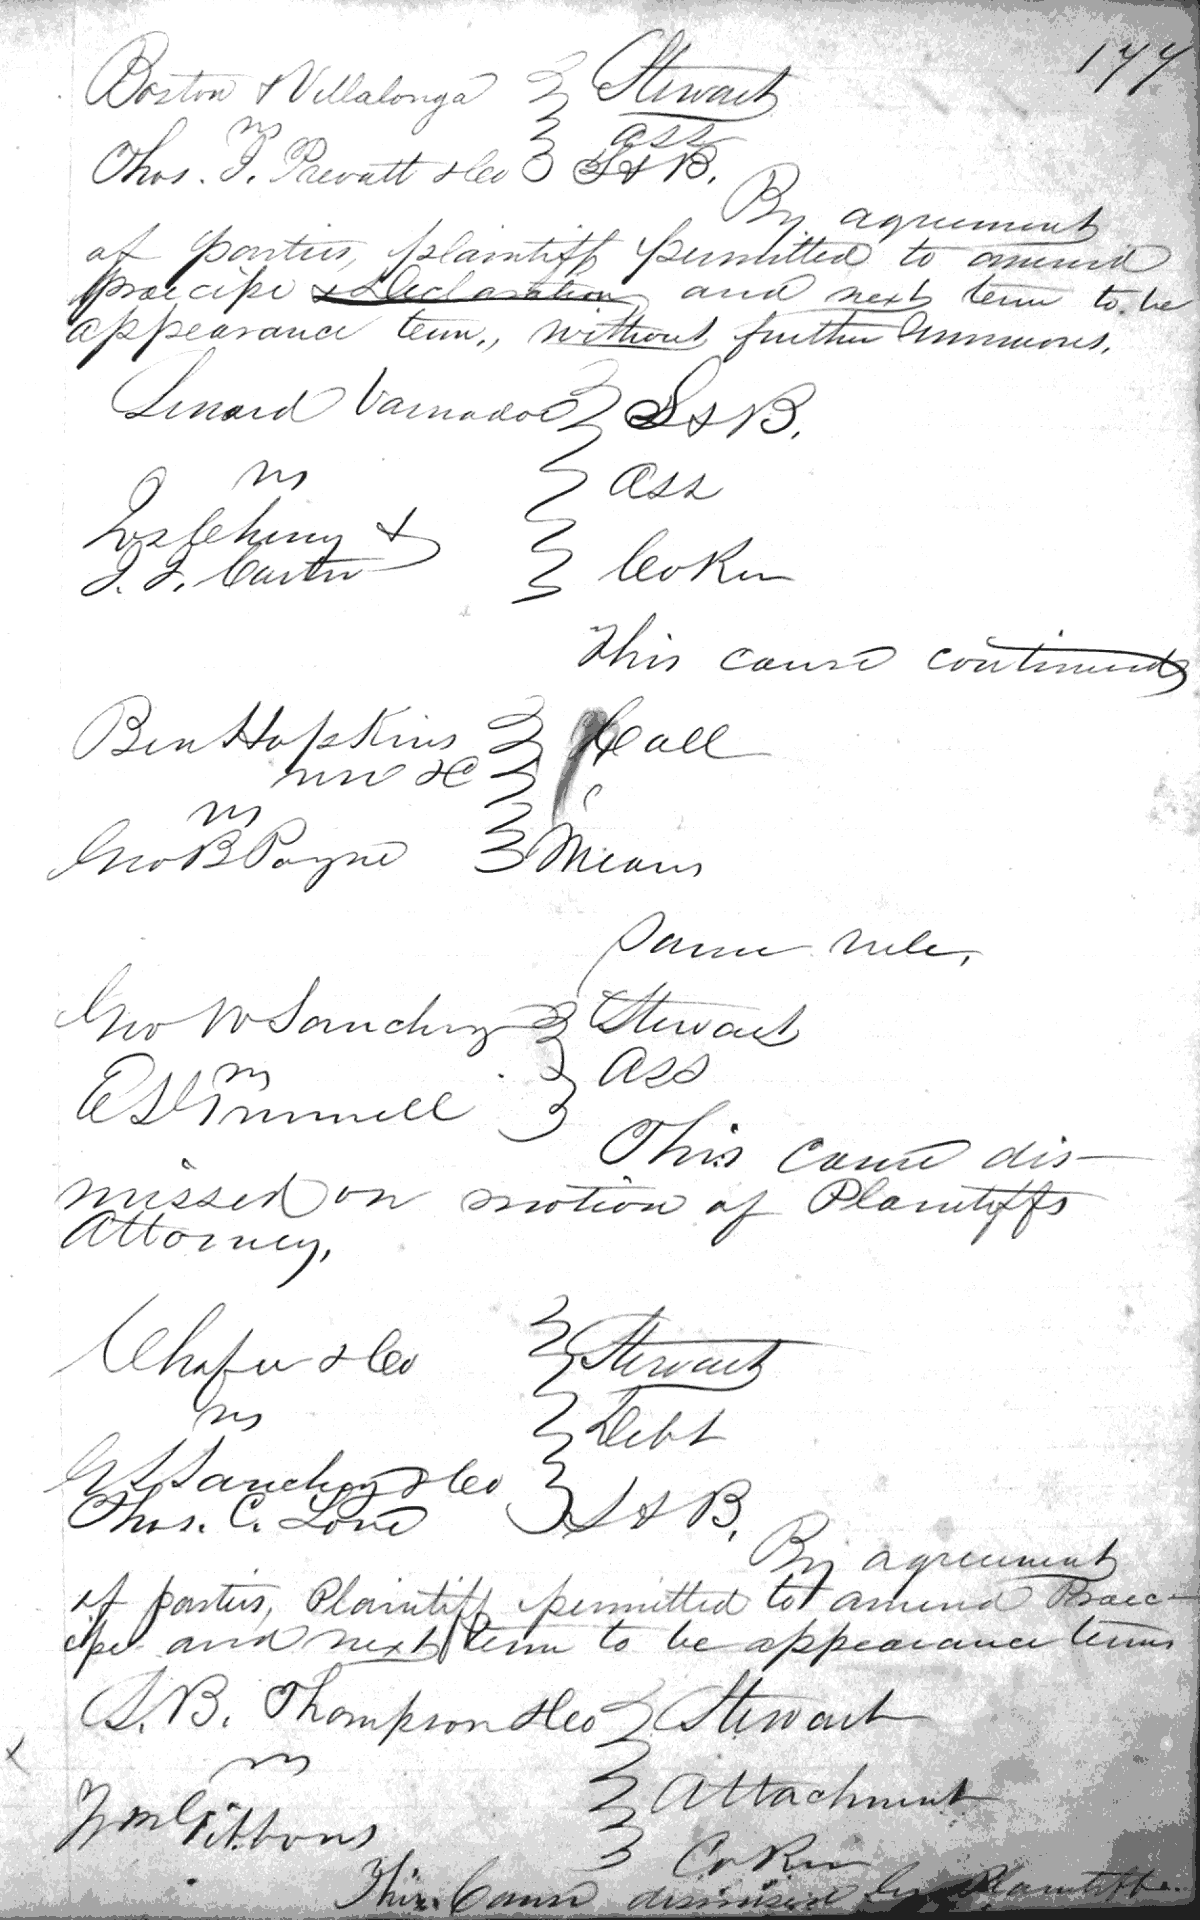 177
Boston & Villalonga Stewart
vs ass
Thos. J. Prevatt & Co S & B.
By agreement
of parties, plaintiff permitted to amend
praecipe & Declaration and next term to be
appearance term., without further summons.
Lenard Varnadoe S & B.
vs ass
&
J. J. Carter Coker
This cause continued
Ben Hopkins Call
use &c
vs
Geo B Payne Means
Same rule.
Geo W Sanchez Stewart
vs ass
E S
This cause dis-
missed on motion of Plaintiffs
Attorney.
Chafer & Co Stewart
vs Debt
Sanchez & Co
Thos. C. Love S & B.
By agreement
of parties, Plaintiff permitted to amend Praec-
ipe and next term to be appearance term
S. B. Thompson & Co Stewart
vs Attachment
Wm Gibbons
Coker
This Cause dismissed by Plaintiff.